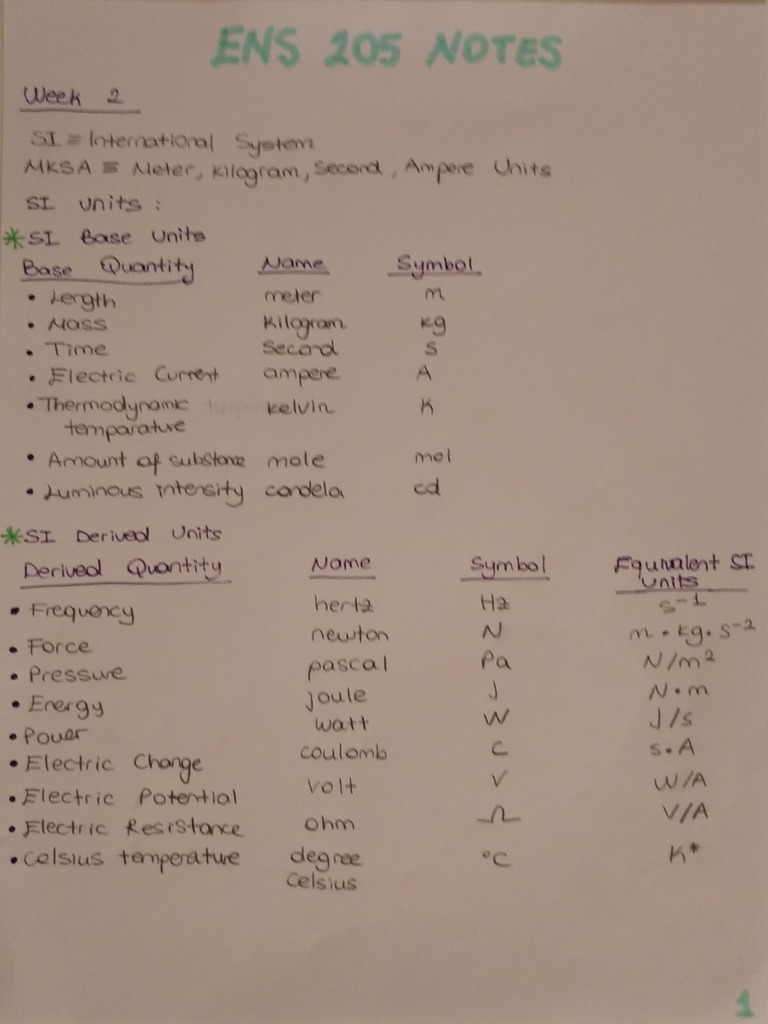 ENS 205 NOTES
Week 2
SI ≡ International System
MKSA ≡ Meter, Kilogram, Second, Ampere Units
SI Units :
*SI Base Units
Base Quantity Name Symbol
• Length meter m
• Mass kilogram kg
• Time second s
• Electric Current ampere A
• Thermodynamic kelvin K
temparature
• Amount of substance mole mol
• Luminous intensity candela cd
*SI Derived Units
Derived Quantity Name Symbol Equivalent SI
Units
• Frequency hertz Hz s⁻¹
• Force newton N m•kg•s⁻²
• Pressure pascal Pa N/m²
• Energy joule J N•m
• Power watt W J/s
• Electric Change coulomb C s•A
• Electric Potential volt V W/A
• Electric Resistance ohm Ω V/A
• Celsius temperature degree °C K*
Celsius
1